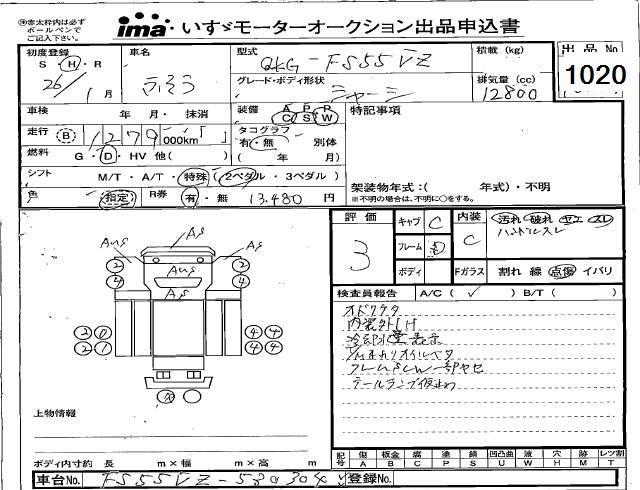 ㊟赤太枠内は必ず
ボールペンで
ご記入下さい。
ima いすゞモーターオークション出品申込書
初度登録 S・H・R 26年 1月
車名 ふそう
型式 QKG-FS55VZ
グレード・ボディ形状 シャーシ
積載 (kg)
排気量 (cc) 12800
出品No 1020
車検 年 月・抹消
走行 B 1279 000km
燃料 G・D・HV 他( )
装備 A P R C S W
タコグラフ 有・無 別体 ( 年 月)
特記事項
架装物年式:( 年式)・不明
※不明の場合は、不明に○をする。
シフト M/T・A/T・特殊 (2ペダル・3ペダル)
色 指定 R券 有・無 13,480 円
評価 3
キャブ C
フレーム D
ボディ
内装 C
Fガラス
汚れ 破れ ヤニ スレ
ハンドルスレ
割れ 線 点傷 イバリ
検査員報告 A/C( ✓ ) B/T( )
オドクケタ
内装外しH
冷却水量表示
フレームSCW一部ヤセ
テールランプ仮止め
AS
AUS AS
AUS
AS
2 2
4 4
2 0 4 4
2 1 4 4
上物情報
ボディ内寸約 長 m×幅 m×高 m
記号 傷A 板金B 腐C 塗P 錆S 凹凸曲U 波W 穴H 跡M レツ割T
車台No. FS55VZ-580304
登録No.